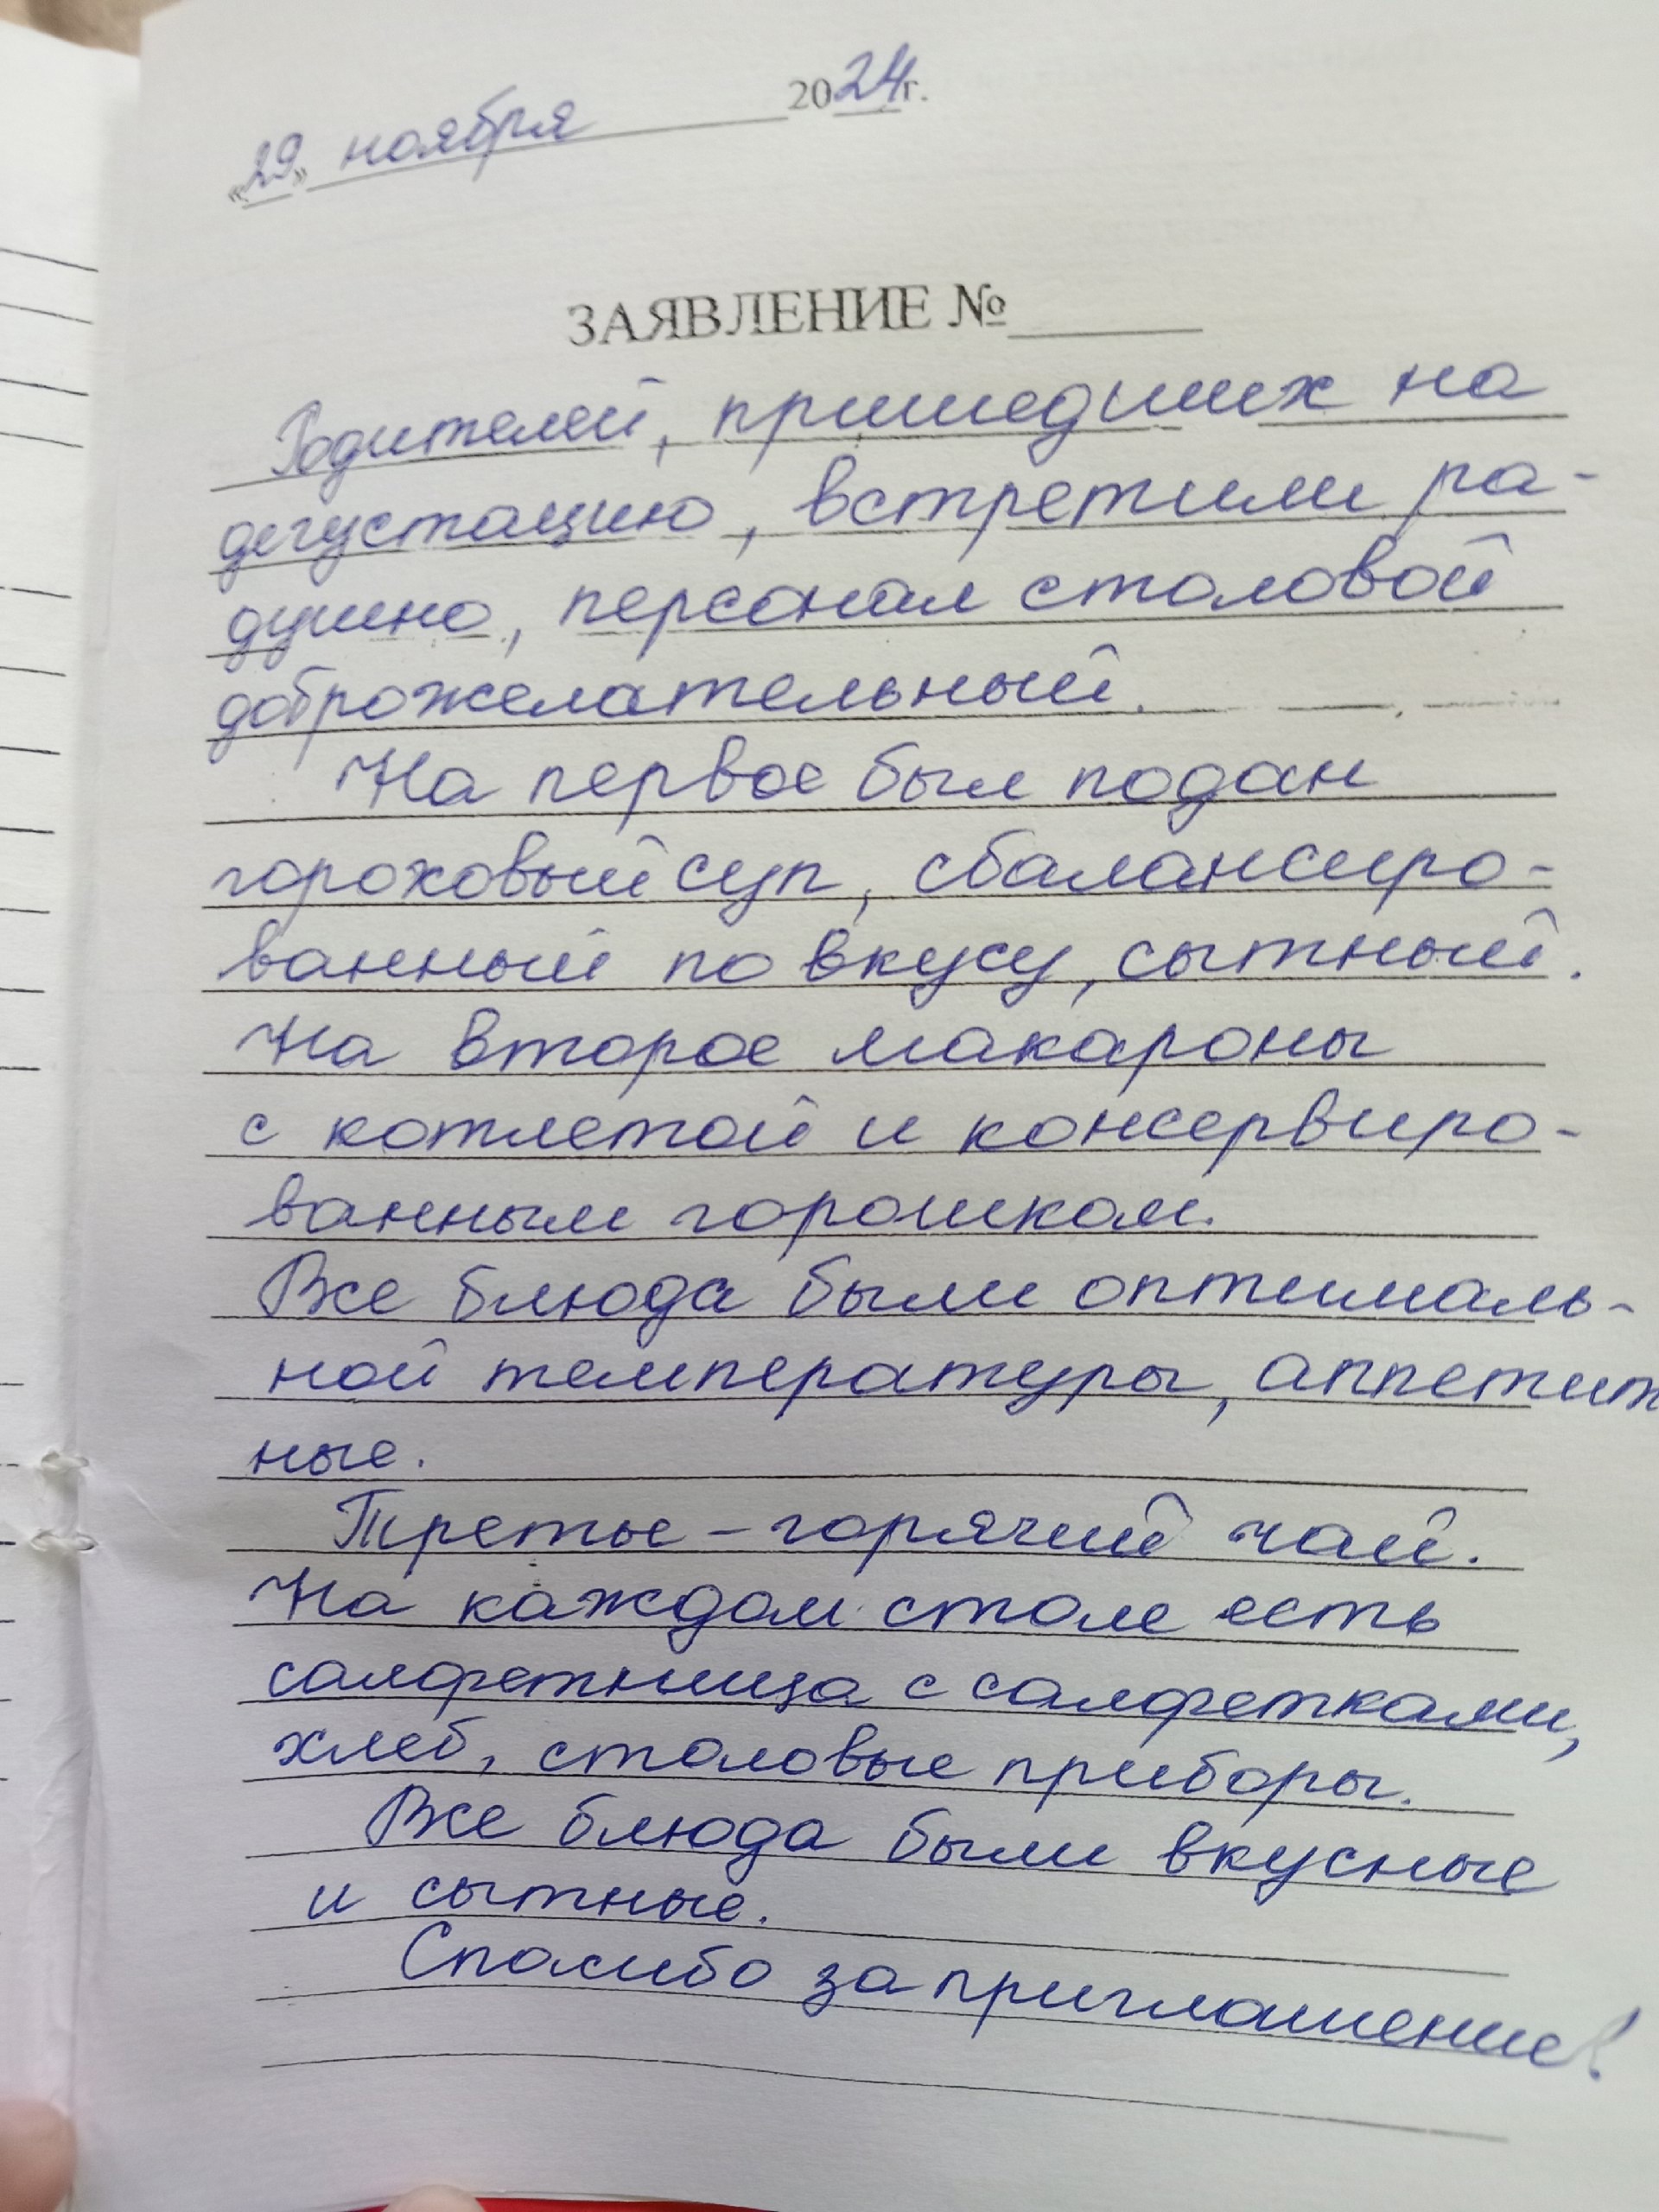 «29» ноября 2024г.
ЗАЯВЛЕНИЕ №
Родителей, пришедших на
дегустацию, встретили ра-
душно, персонал столовой
доброжелательный.
На первое был подан
гороховый суп, сбалансиро-
ванный по вкусу, сытный.
На второе макароны
с котлетой и консервиро-
ванным горошком.
Все блюда были оптималь-
ной температуры, аппетит
ные.
Третье - горячий чай.
На каждом столе есть
салфетница с салфетками,
хлеб, столовые приборы.
Все блюда были вкусные
и сытные.
Спасибо за приглашение!